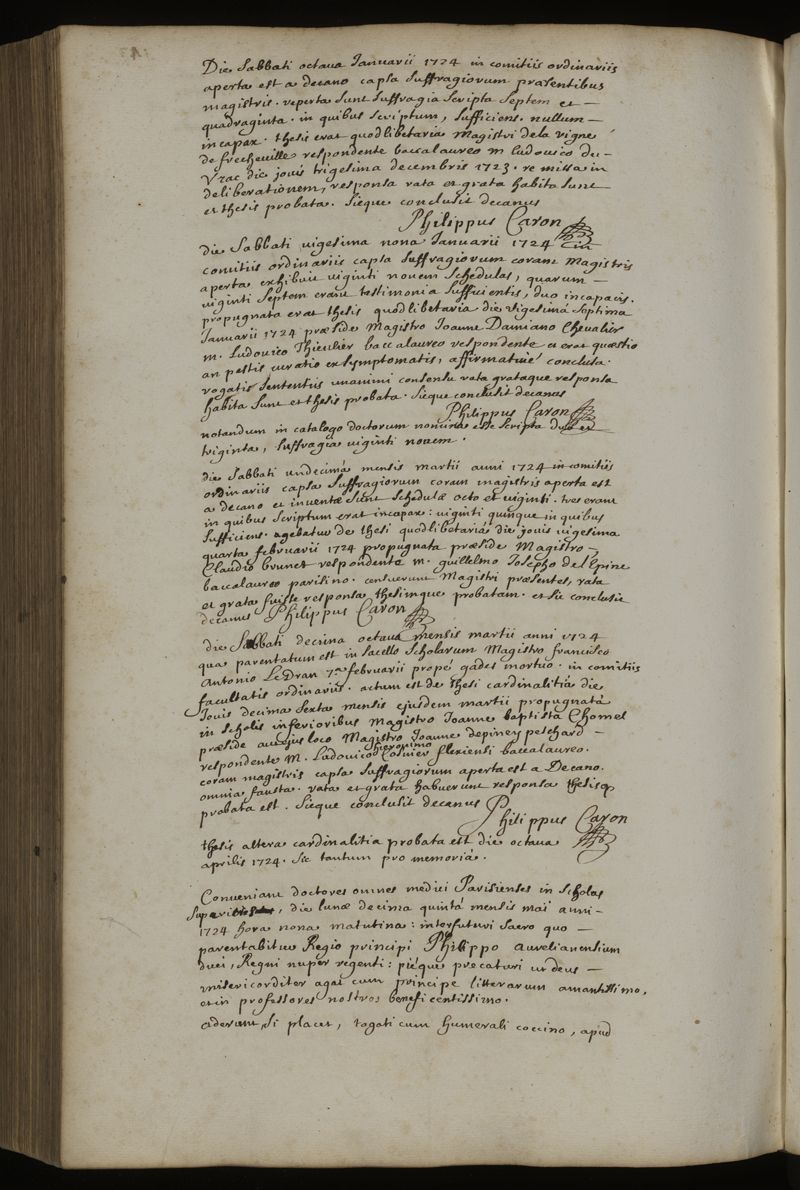 Die Sabbati octava Januarii 1724 in comitiis ordinariis
aperta est a decano capsa suffragiorum præsentibus
magistris. reperta sunt suffragia scripta septem et —
quadraginta. in quibus scriptum, sufficiens. nullum —
incapax. thesis erat quodlibetaria Magistri de la vigne
de frecheville respondente baccalaureo m ludovico du-
vrac die jovis trigesima decembris 1723. re missa in
deliberationem, responsa rata et grata habita sunt
et thesis probata. sicque conclusit decanus
Philippus Caron
die Sabbati vigesima nona Januarii 1724 in
comitiis ordinariis capsa suffragiorum coram Magistris
aperta exhibuit viginti novem schedulas, quarum —
viginti septem erant testimonia sufficientis, duo incapacis.
propugnata erat thesis quodlibetaria die vigesimâ septima
Januarii 1724 præside Magistro Joanne Damiano Chevalier
m. Ludovico Thieulier baccalaureo respondente et erat quæstio
an pestis curatio ex symptomatis, affirmativè conclusa.
rogatis sententiis unanimi consensu rata grataque responsa
habita sunt et thesis probata. sicque conclusit decanus
Philippus Caron
notandum in catalogo doctorum nomina esse scripta
triginta, suffragia viginti novem.
die Sabbati undecimâ mensis martii anni 1724 in comitiis
ordinariis capsa suffragiorum coram magistris aperta est
a decano et inventæ sunt schedulæ octo et viginti. tres erant
in quibus scriptum erat incapax: viginti quinque in quibus
sufficiens. agebatur de thesi quodlibetariâ die jovis vigesima
quarta februarii 1724 propugnata præside Magistro —
Claudio brunet respondente m. guillelmo Josepho de l'Epine
baccalaureo parisino. censuerunt Magistri præsentes, rata
et grata fuisse responsa thesimque probatam. et sic conclusit
decanus Philippus Caron
die Sabbati decima octava mensis martii anni 1724
qua parentatum est in sacello scholarum Magistro francisco
Antonio LeDran 7a februarii propè gades mortuo. in comitiis
facultatis ordinariis. actum est de thesi cardinalitiâ die
Jovis decima sexta mensis ejusdem martii propugnatâ
in scholis inferioribus Magistro Joanne baptista Chomel
præside aut ejus loco Magistro Joanne depiney pelchard —
hieronimo
respondente M. Ludovico Cosnier flexiensi baccalaureo.
coram magistris capsa suffragiorum aperta est a Decano.
omnia fausta. rata et grata habuerunt responsa thesisq
probata est. sicque conclusit decanus
Philippus Caron
thesis altera cardinalitia probata est die octava
aprilis 1724. sic tantum pro memoriâ.
Conveniant doctores omnes medici Parisienses in scholas
superiores, die lunæ decima quintâ mensis maï anni —
1724 hora nona matutina: interfuturi sacro quo —
parentabitur Regio principi Philippo aurelianensium
duci, Regni nuper regenti: piéque precaturi ut deus —
misericorditer agat cum principe litterarum amantissimo,
et in professores nostros beneficentissimo.
aderunt, si placet, togati cum humerali coccino, apud